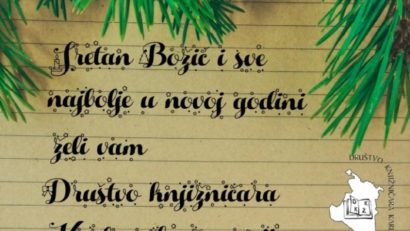 Sretan Božić i sve
najbolje u novoj godini
želi vam
Društvo knjižničara
DRUŠTVO